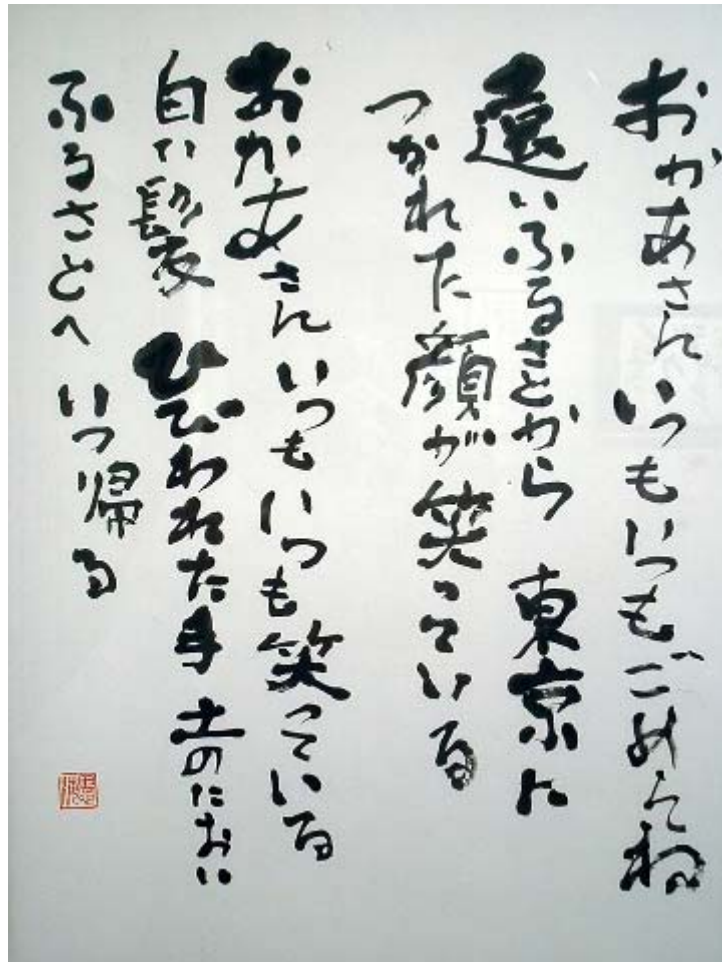 おかあさん いつもいつもごめんね
遠いふるさとから 東京に
つかれた顔が笑っている
おかあさん いつもいつも笑っている
白い髪 ひびわれた手 土のにおい
ふるさとへ いつ帰る